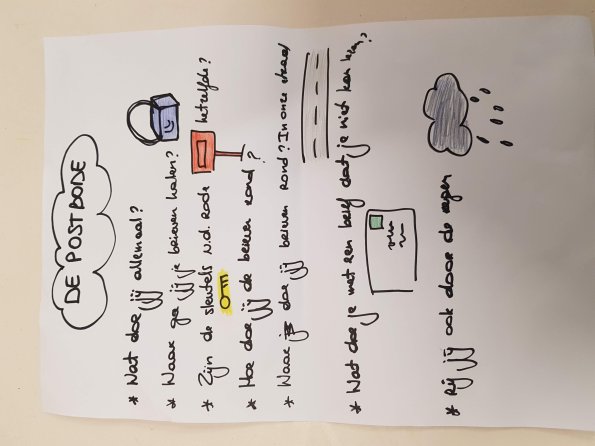 DE POSTBODE
* Wat doe jij allemaal?
* Waar ga jij je brieven halen?
* Zijn de sleutels v.d. rode hetzelfde?
* Hoe doe jij de brieven rond?
* Waar doe jij brieven rond? In onze straat
* Wat doe je met een brief dat je niet kan
* Rij jij ook door de regen